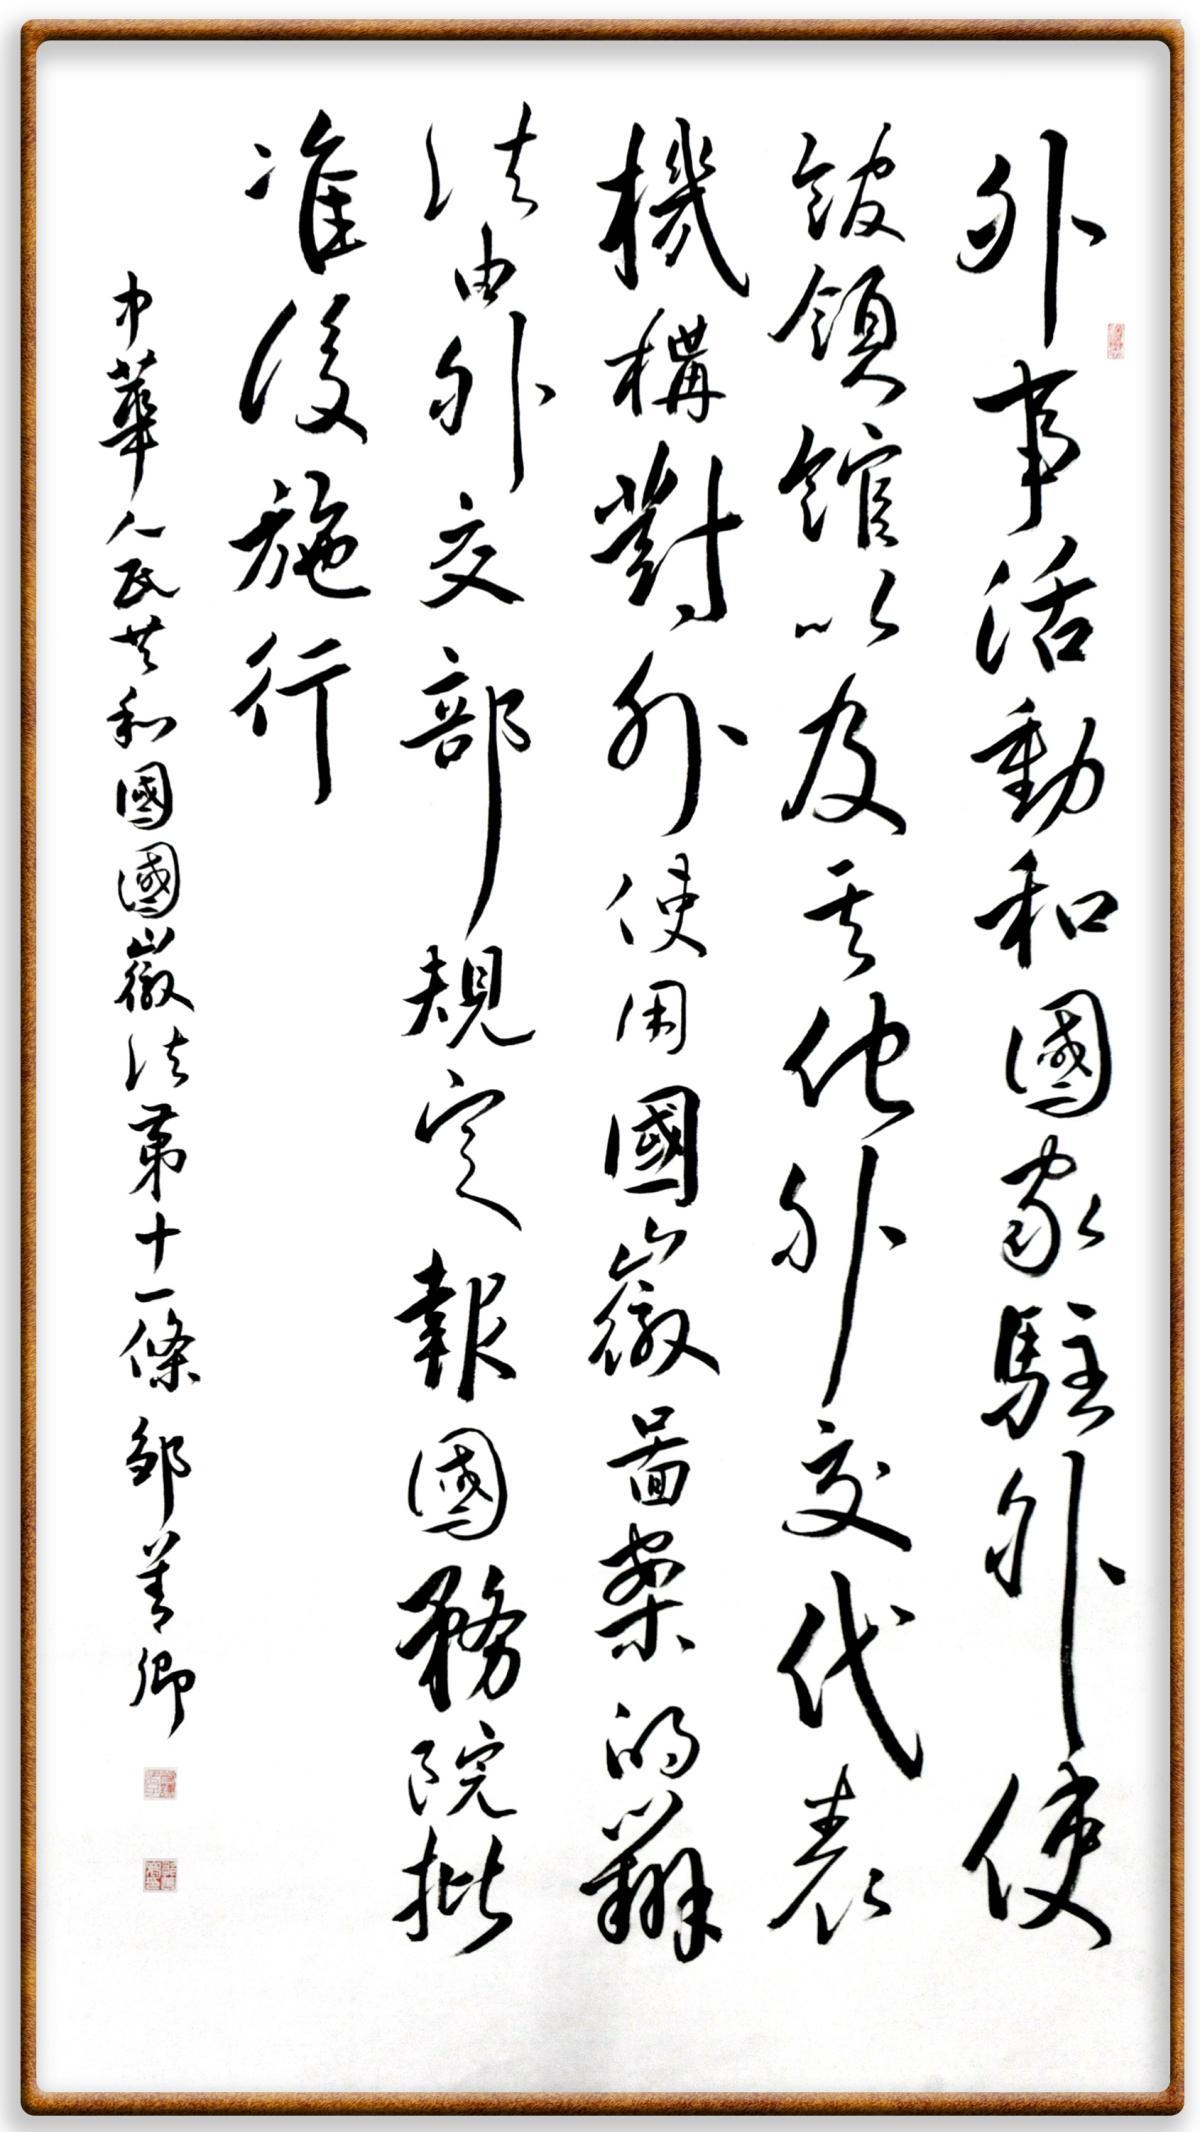 外事活動和國家駐外使
館領館以及其他外交代表
機構對外使用國徽圖案的辦
法由外交部規定報國務院批
准後施行
中華人民共和國國徽法第十一條 鄒菁卿